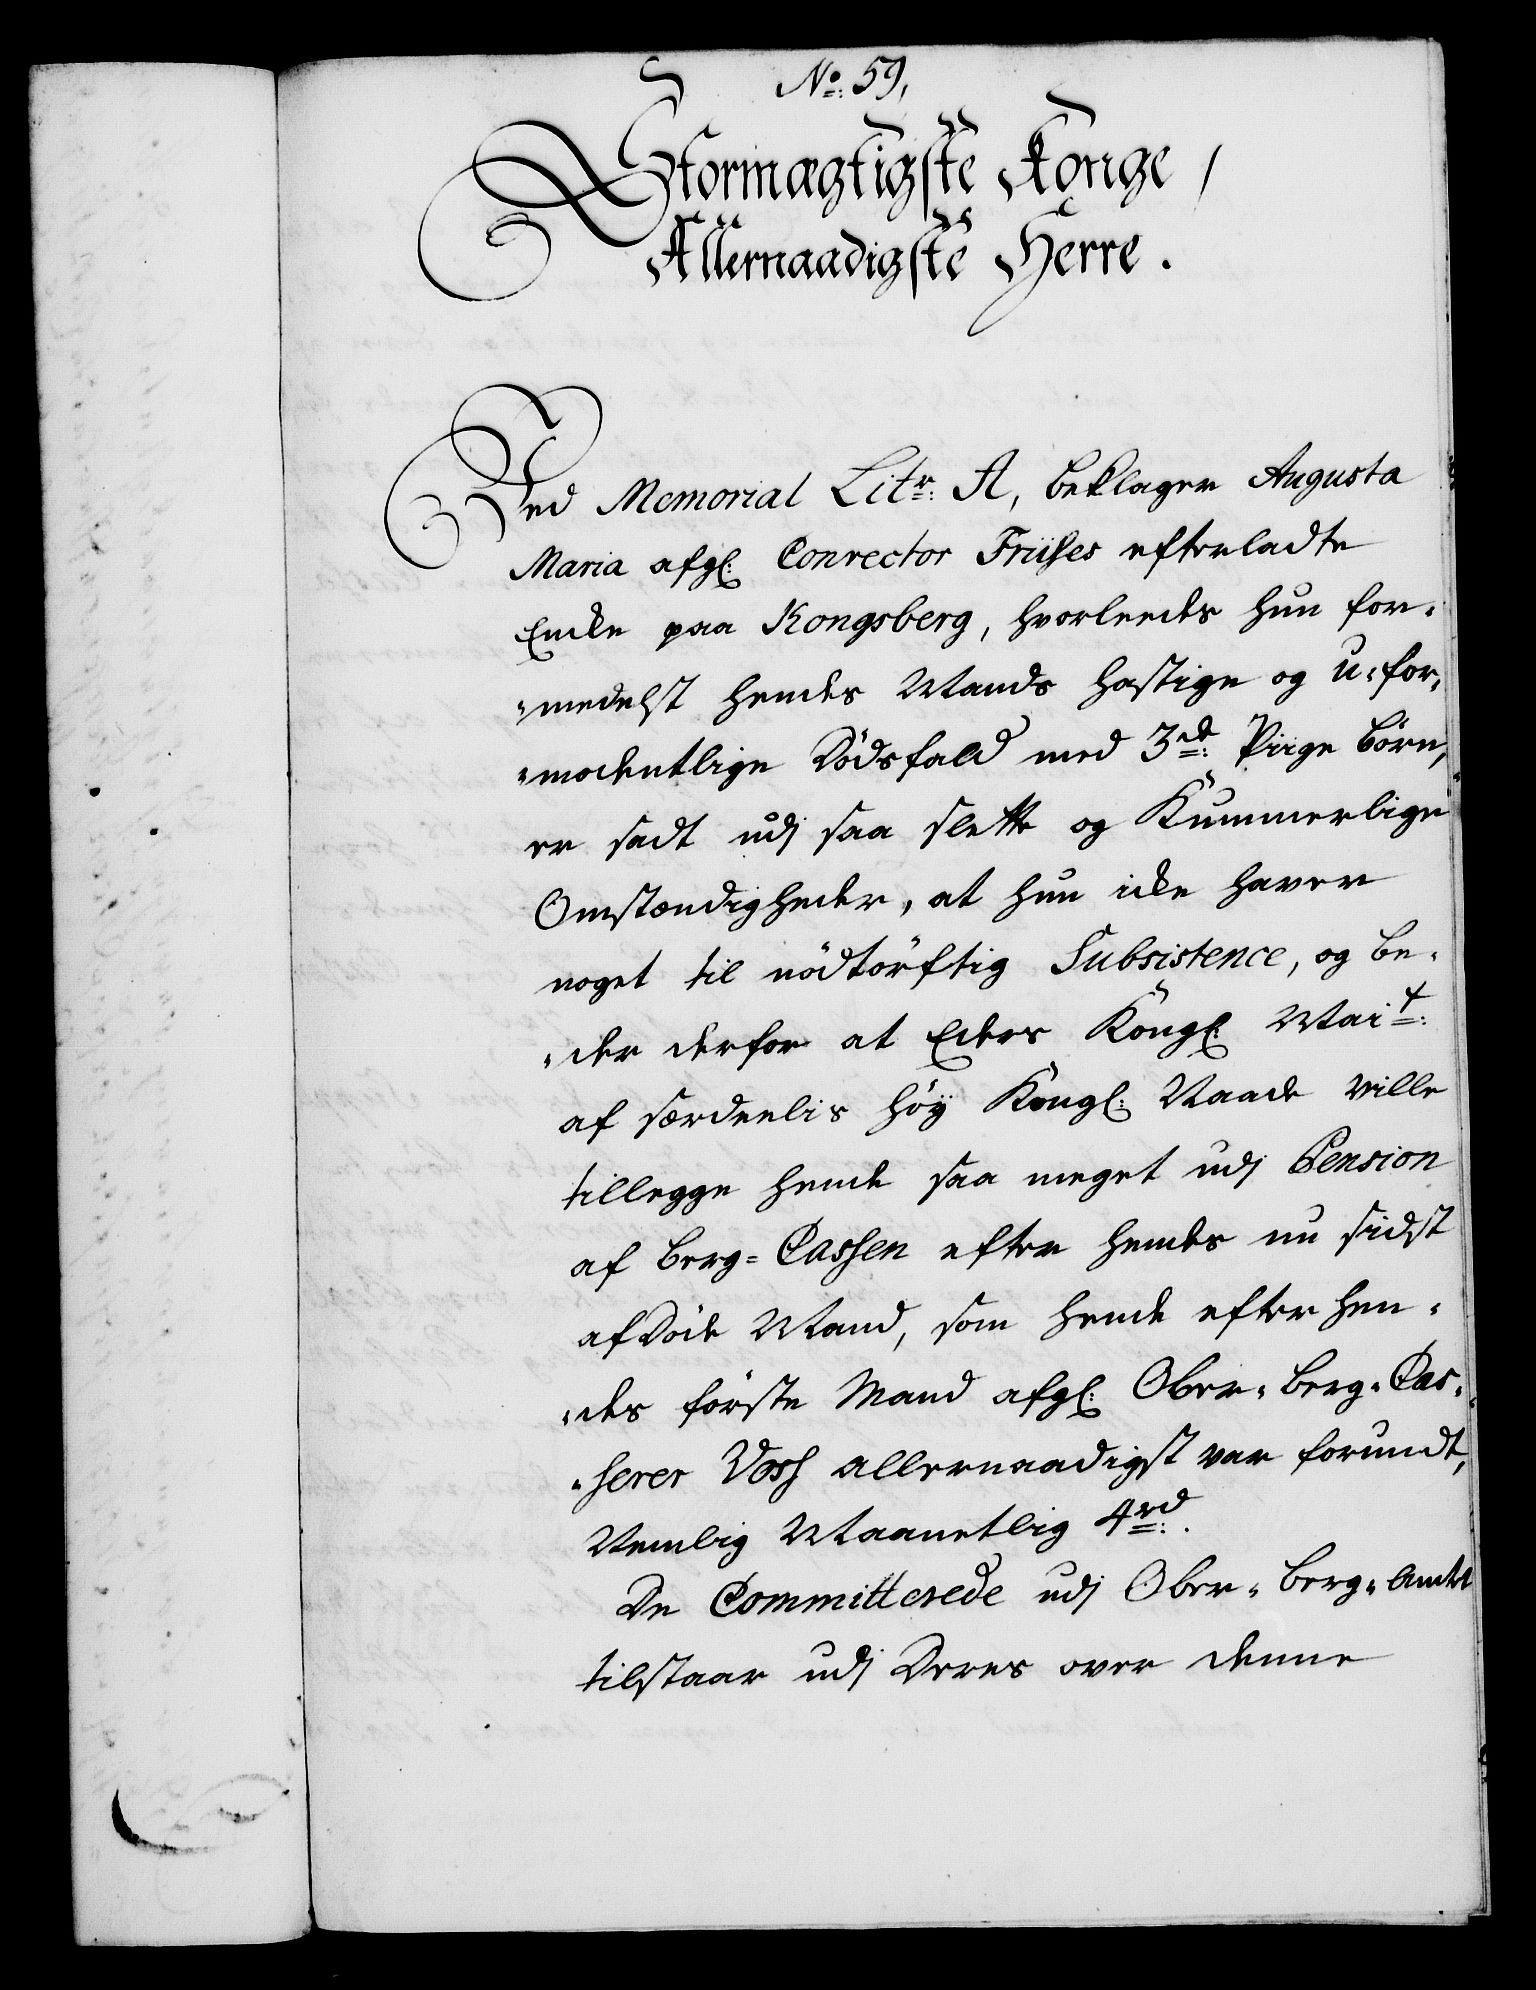 No: 59,
Stormægtigste Konge,
Allernaadigste Herre.
Ved Memorial Litr: A, beklager Augusta
Maria afgl: Conrector Friises efterladte
Encke paa Kongsberg, hvorleedes hun for-
-medelst hendes Mands hastige og u-for-
-modentlige Dødsfald med 3de: Piige børn,
er sadt udj saa slette og Kummerlige
Omstændigheder, at hun icke haver
noget til nødtørftig Subsistence, og be-
-der derfor at Eders Kongl: Mait:
af særdeelis høy Kongl: Naade ville
tillegge hende saa meget udj Pension
af berg-Cassen efter hendes nu sidst
afdøde Mand, som hende efter hen-
-des første Mand afgl: Ober-berg-Cas-
-serer Vosh allernaadigst var forundt,
Nemlig Maanetlig 4rd:.
De Committerede udj Ober-berg-Amtet
tilstaar udj Deres over denne